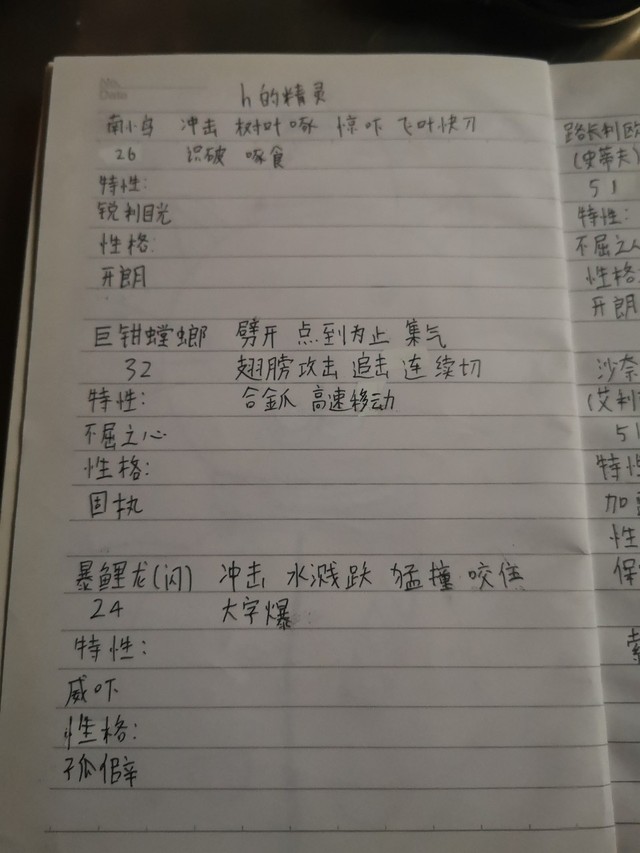 No.
Date
h的精灵
南小鸟 冲击 树叶 啄 惊吓 飞叶快刀
26 识破 啄食
特性:
锐利目光
性格:
开朗
巨钳螳螂 劈开 点到为止 集气
32 翅膀攻击 追击 连续切
特性: 合金爪 高速移动
不屈之心
性格:
固执
暴鲤龙(闪) 冲击 水溅跃 猛撞 咬住
24 大字爆
特性:
威吓
性格:
孤僻
路长利欧
(史蒂夫)
51
特性:
不屈之
性格
开朗
沙奈
(艾利
51
特性
加
性
保
索